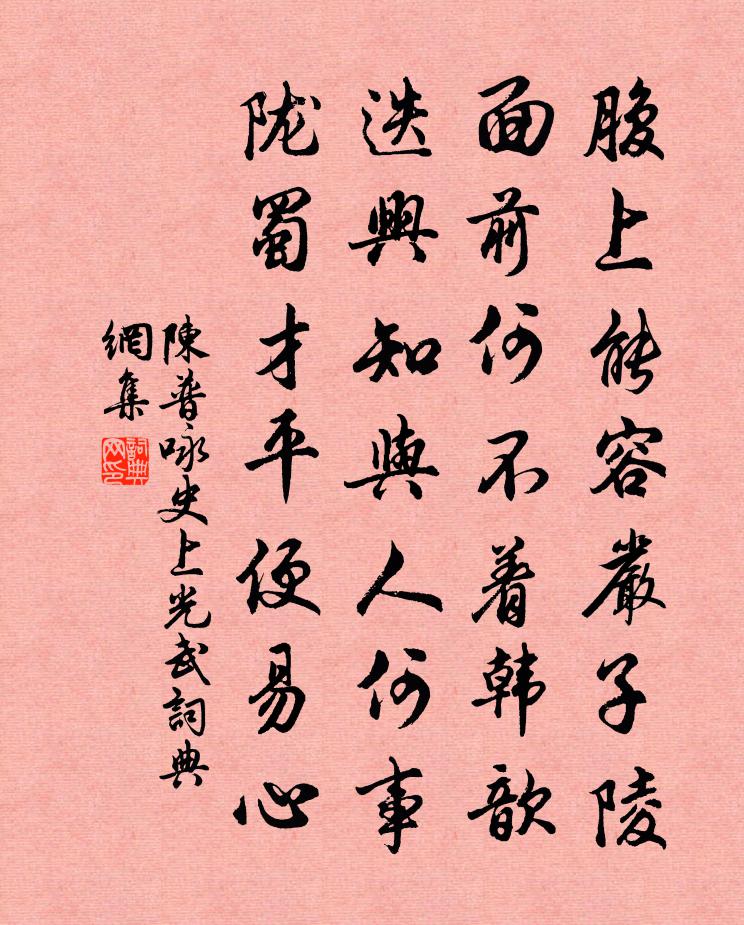 腹上能容嚴子陵
面前何不着韩歆
迭興知與人何事
陇蜀才平便易心
陳普咏史上光武詞典
網集
詞典
网印